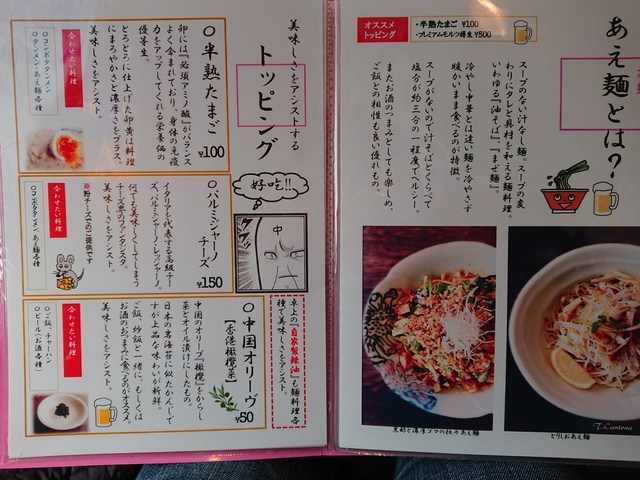 あえ麺とは?
オススメ
トッピング
・半熟たまご ¥100
・プレミアムモルツ樽生 ¥500
スープのない汁なし麺。スープの変
わりにタレと具材を和える麺料理。
いわゆる『油そば』、『まぜ麺』。
冷やし中華とは違い麺を冷やさず
暖かいまま食べるのが特徴。
スープがないので汁そばとくらべて
塩分が約三分の一程度でヘルシー。
またお酒のつまみとしても楽しめ、
ご飯との相性も良い優れもの。
黒胡と濃厚ゴマの担々あえ麺
とりしおあえ麺
T.Cantona
美味しさをアシストする
トッピング
○半熟たまご
¥100
卵には『必須アミノ酸』がバランス
よく含まれており、身体の免疫
力をアップしてくれる栄養価の
優等生。
とろとろに仕上げた卵黄は料理
にまろやかさと濃厚さをプラス。
美味しさをアシスト。
合わせたい料理
○コンボタタンメン
○タンメン・あえ麺各種
好吃!!
中
○パルミジャーノ
チーズ
¥150
イタリアを代表する高級チー
ズ、パルミジャーノ・レッジャーノ。
何でも美味しくしてしまう
チーズ界のファンタジスタ。
美味しさをアシスト。
※粉チーズでのご提供です
合わせたい料理
○コンボタタンメン、あえ麺各種
卓上の『自家製辣油』も麺料理各
種で美味しさをアシスト。
○中国オリーヴ
【香港橄欖菜】
¥50
中国のオリーブ『橄欖』をからし
菜とオイル漬けにしたもの。
日本の岩海苔に似たかんじで
すが上品な味わいが新鮮。
ご飯、炒飯と一緒に、もしくは
お酒のおつまみに食べるのがオススメ。
美味しさをアシスト。
合わせたい料理
○ご飯・チャーハン
○ビール・お酒各種